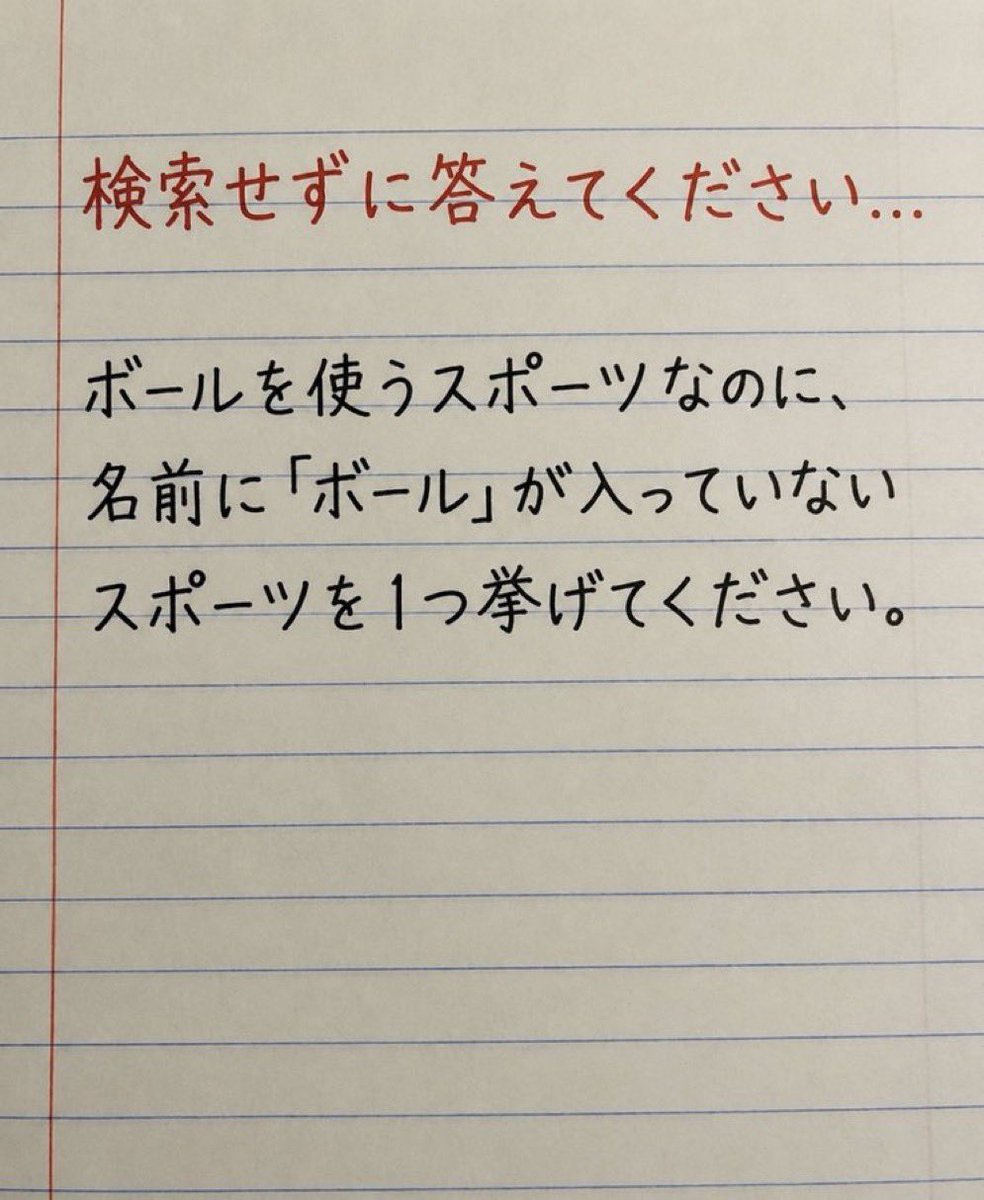 検索せずに答えてください...
ボールを使うスポーツなのに、
名前に「ボール」が入っていない
スポーツを1つ挙げてください。